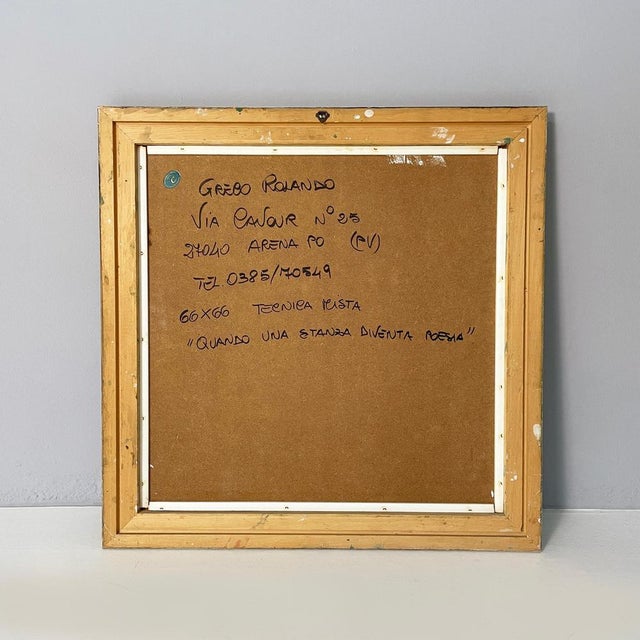 GREBO ROLANDO
VIA CAVOUR N° 25
27040 ARENA PO (PV)
TEL. 0385/70549
66X66 TECNICA MISTA
"QUANDO UNA STANZA DIVENTA POESIA"